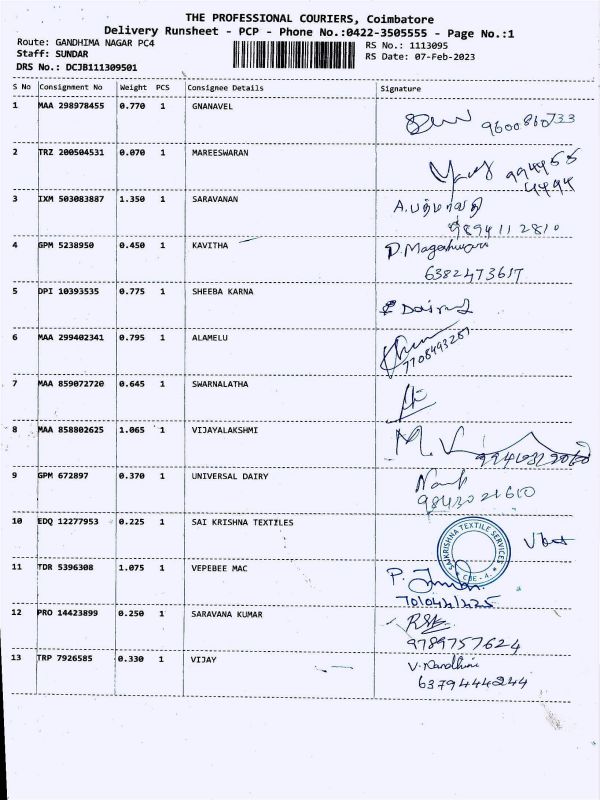 THE PROFESSIONAL COURIERS, Coimbatore
Delivery Runsheet - PCP - Phone No.:0422-3505555 - Page No.:1
Route: GANDHIMA NAGAR PC4
RS No.: 1113095
Staff: SUNDAR
RS Date: 07-Feb-2023
DRS No.: DCJB111309501
S No Consignment No Weight PCS Consignee Details Signature
1 MAA 298978455 0.770 1 GNANAVEL
9600860733
2 TRZ 200504531 0.070 1 MAREESWARAN
994455
4494
3 IXM 503083887 1.350 1 SARAVANAN A.பத்மாவதி
9894112810
4 GPM 5238950 0.450 1 KAVITHA D.Mageshwari
6382473617
5 DPI 10393535 0.775 1 SHEEBA KARNA
6 MAA 299402341 0.795 1 ALAMELU
7708493287
7 MAA 859072720 0.645 1 SWARNALATHA
8 MAA 858802625 1.065 1 VIJAYALAKSHMI M.V
9 GPM 672897 0.370 1 UNIVERSAL DAIRY
9843021610
10 EDQ 12277953 0.225 1 SAI KRISHNA TEXTILES
SAIKRISHNA TEXTILE SERVICES
* CBE - 4. *
11 TDR 5396308 1.075 1 VEPEBEE MAC
12 PRO 14423899 0.250 1 SARAVANA KUMAR
9789757624
13 TRP 7926585 0.330 1 VIJAY V.Nandhini
6379444244